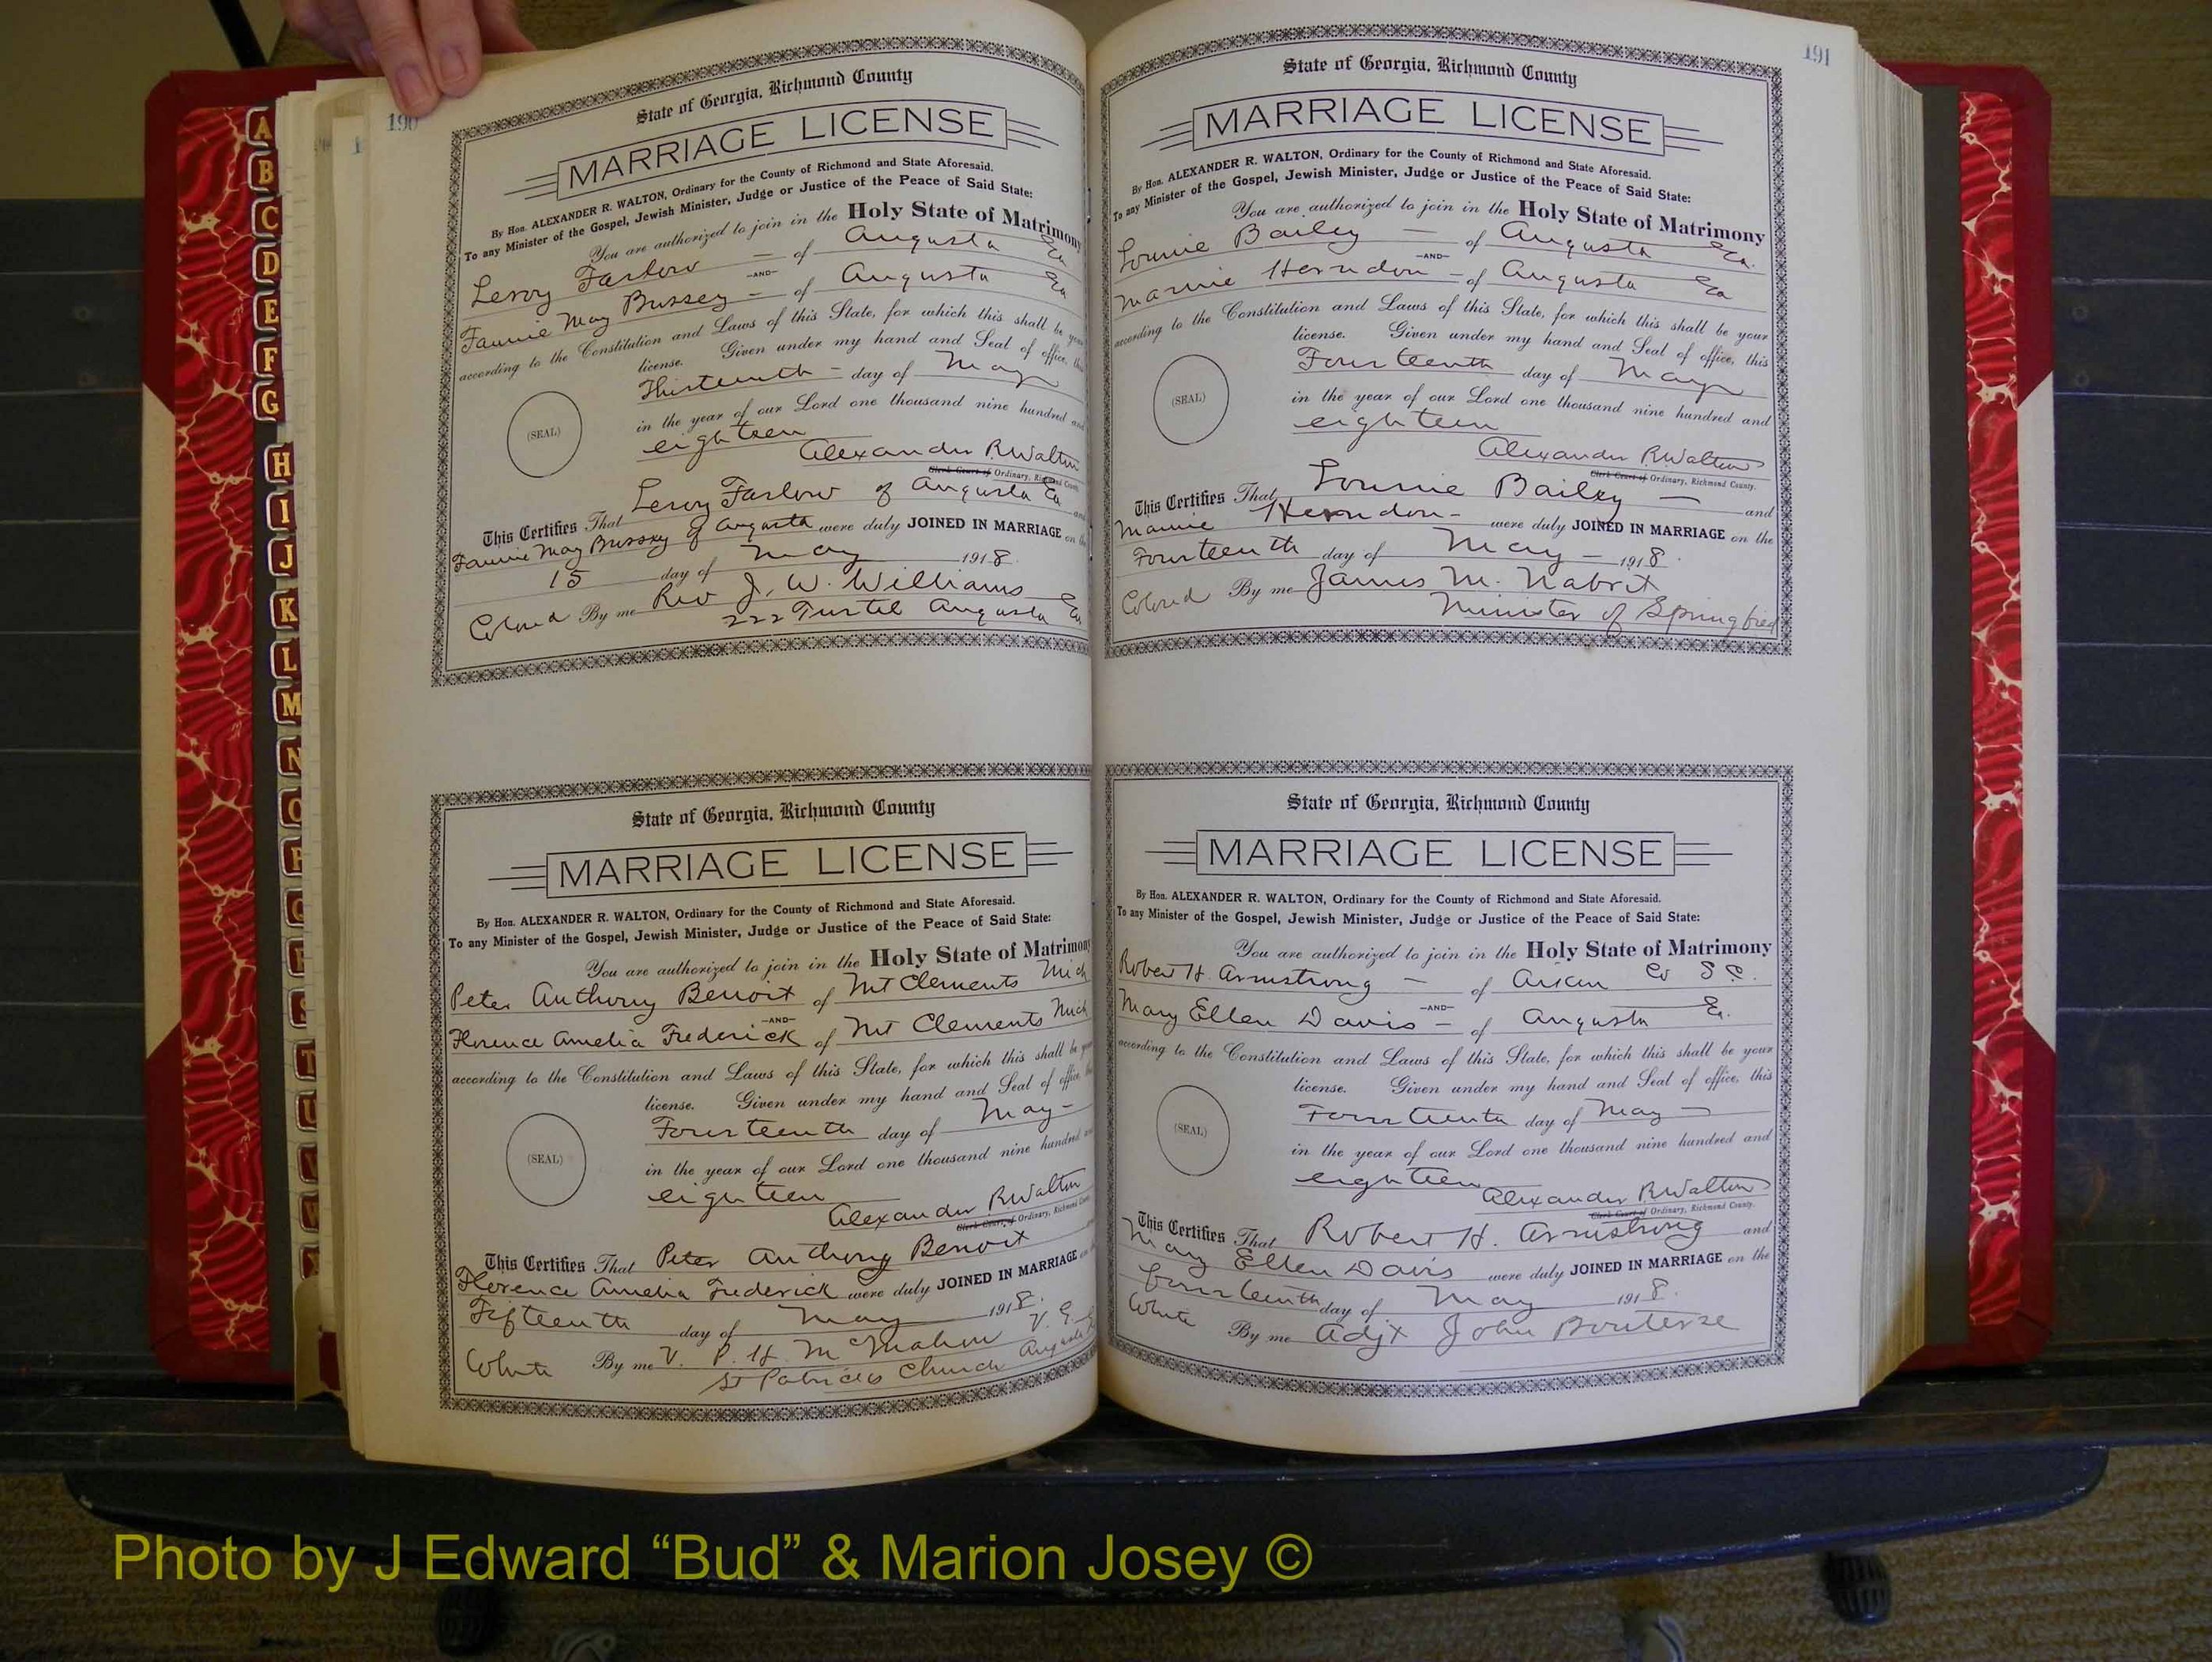 190
State of Georgia, Richmond County
MARRIAGE LICENSE
By Hon. ALEXANDER R. WALTON, Ordinary for the County of Richmond and State Aforesaid.
To any Minister of the Gospel, Jewish Minister, Judge or Justice of the Peace of Said State:
You are authorized to join in the Holy State of Matrimony
Leroy Farlow — of Augusta Ga
-AND-
Fannie May Bussey — of Augusta Ga
according to the Constitution and Laws of this State, for which this shall be your
license. Given under my hand and Seal of office, this
Thirteenth — day of May
(SEAL)
in the year of our Lord one thousand nine hundred and
eighteen
Alexander R Walton
Clerk Court of Ordinary, Richmond County
This Certifies That Leroy Farlow of Augusta Ga and
Fannie May Bussey of Augusta were duly JOINED IN MARRIAGE on the
15 day of May 1918.
Colored By me Rev J. W. Williams
222 Augusta Ga
State of Georgia, Richmond County
MARRIAGE LICENSE
By Hon. ALEXANDER R. WALTON, Ordinary for the County of Richmond and State Aforesaid.
To any Minister of the Gospel, Jewish Minister, Judge or Justice of the Peace of Said State:
You are authorized to join in the Holy State of Matrimony
Peter Anthony Benoit of Mt Clements Mich
-AND-
Florence Amelia Frederick of Mt Clements Mich
according to the Constitution and Laws of this State, for which this shall be your
license. Given under my hand and Seal of office, this
Fourteenth day of May —
(SEAL)
in the year of our Lord one thousand nine hundred and
eighteen
Alexander R Walton
Clerk Court of Ordinary, Richmond County
This Certifies That Peter Anthony Benoit
Florence Amelia Frederick were duly JOINED IN MARRIAGE on the
Fifteenth day of May 1918.
White By me V. P. H. McMahon V. G.
St Patricks Church Augusta
191
State of Georgia, Richmond County
MARRIAGE LICENSE
By Hon. ALEXANDER R. WALTON, Ordinary for the County of Richmond and State Aforesaid.
To any Minister of the Gospel, Jewish Minister, Judge or Justice of the Peace of Said State:
You are authorized to join in the Holy State of Matrimony
Lonnie Bailey — of Augusta Ga.
-AND-
Mamie Herndon — of Augusta Ga
according to the Constitution and Laws of this State, for which this shall be your
license. Given under my hand and Seal of office, this
Fourteenth day of May
(SEAL)
in the year of our Lord one thousand nine hundred and
eighteen
Alexander R Walton
Clerk Court of Ordinary, Richmond County.
This Certifies That Lonnie Bailey — and
Mamie Herndon — were duly JOINED IN MARRIAGE on the
Fourteenth day of May — 1918.
Colored By me James M. Nabrit
Minister of Springfield
State of Georgia, Richmond County
MARRIAGE LICENSE
By Hon. ALEXANDER R. WALTON, Ordinary for the County of Richmond and State Aforesaid.
To any Minister of the Gospel, Jewish Minister, Judge or Justice of the Peace of Said State:
You are authorized to join in the Holy State of Matrimony
Robert H. Armstrong — of Aiken Co S C.
-AND-
Mary Ellen Davis — of Augusta Ga.
according to the Constitution and Laws of this State, for which this shall be your
license. Given under my hand and Seal of office, this
Fourteenth day of May —
(SEAL)
in the year of our Lord one thousand nine hundred and
eighteen
Alexander R Walton
Clerk Court of Ordinary, Richmond County.
This Certifies That Robert H. Armstrong and
Mary Ellen Davis were duly JOINED IN MARRIAGE on the
fourteenth day of May 1918.
White By me Adjt John Bouterse
A
B
C
D
E
F
G
H
I
J
K
L
M
N
O
P
Q
R
S
T
U
V
W
Photo by J Edward “Bud” & Marion Josey ©